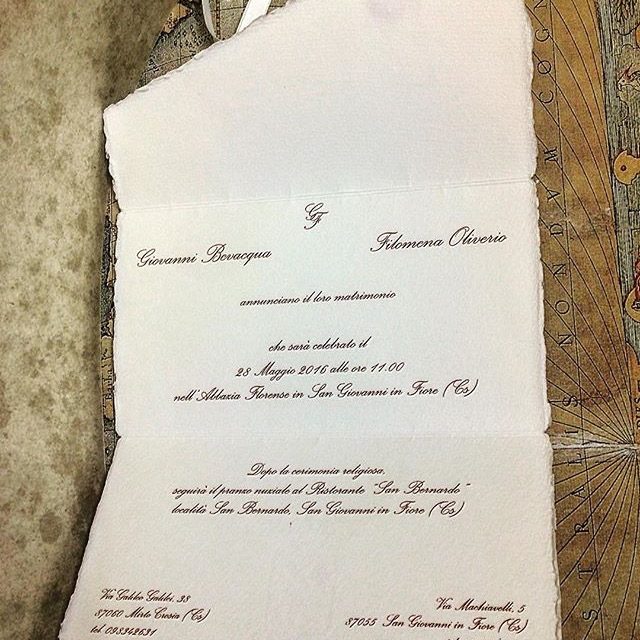 GF
Giovanni Bevacqua
Filomena Oliverio
annunciano il loro matrimonio
che sarà celebrato il
28 Maggio 2016 alle ore 11.00
nell'Abbazia Florense in San Giovanni in Fiore (Cs)
Dopo la cerimonia religiosa,
seguirà il pranzo nuziale al Ristorante "San Bernardo"
località San Bernardo, San Giovanni in Fiore (Cs)
Via Galileo Galilei, 38
87060 Mirto Crosia (Cs)
tel. 098342631
Via Machiavelli, 5
87055 San Giovanni in Fiore (Cs)
STRALIS NONDV
MA COGN